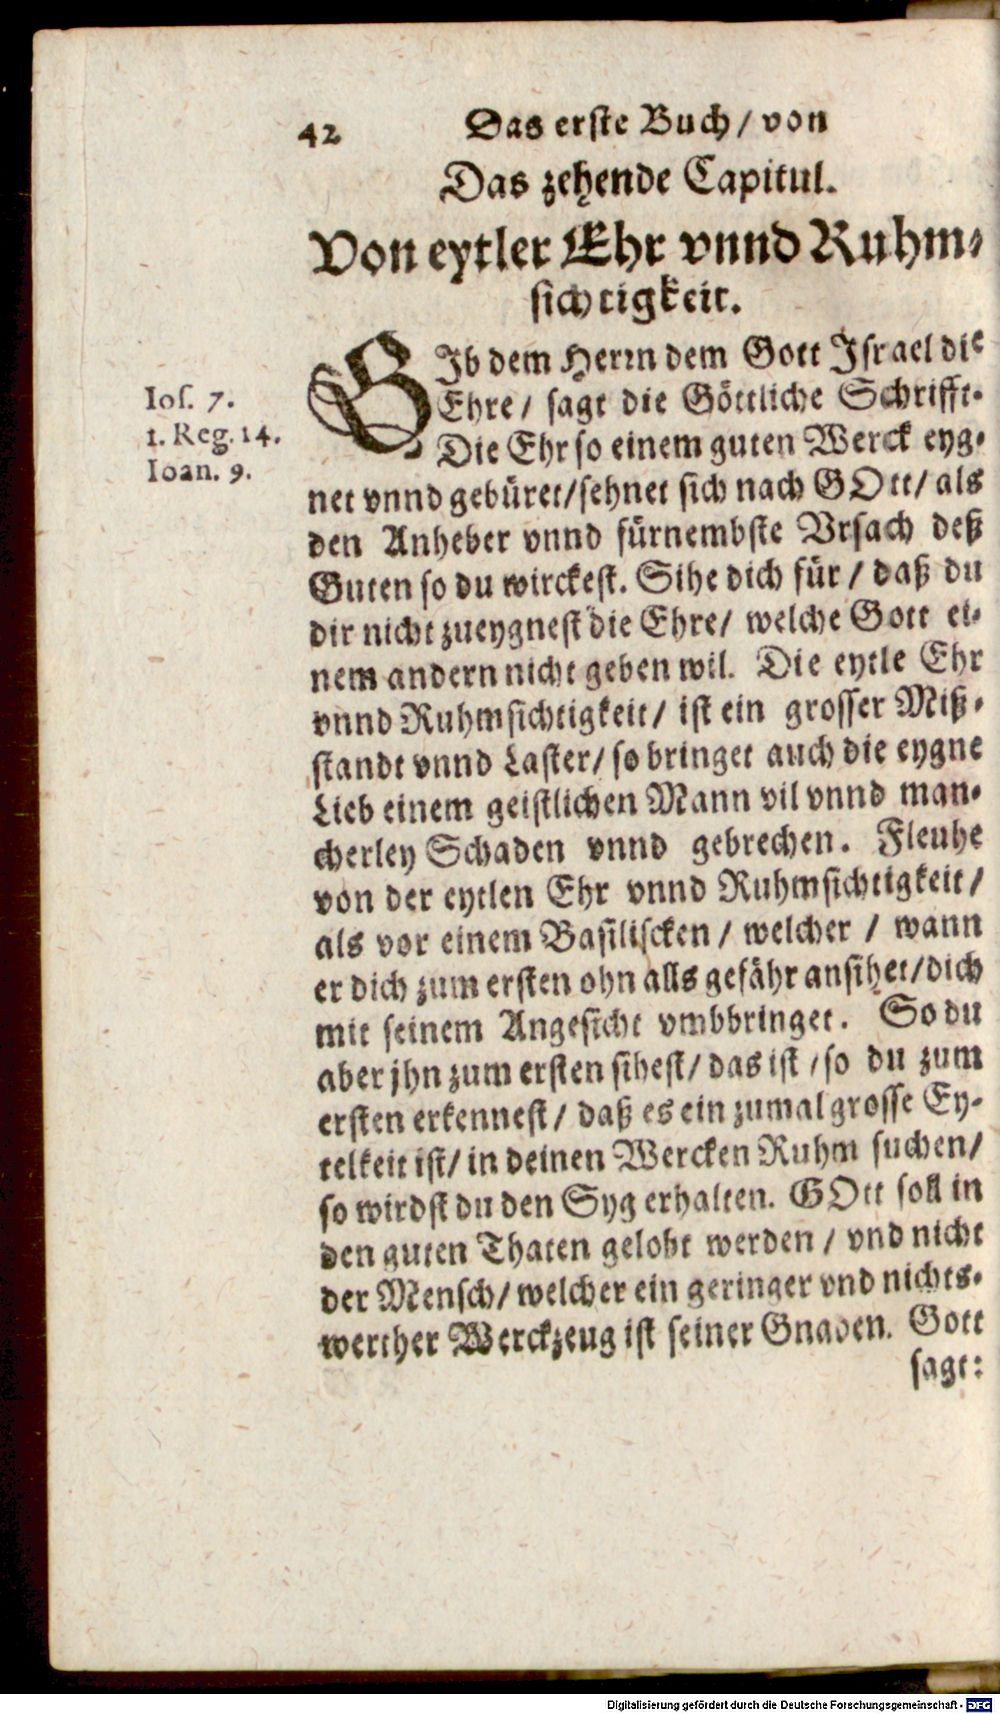 42 Das erste Buch / von
Das zehende Capitul.
Von eytler Ehr vnnd Ruhm-
sichtigkeit.
GIb dem Herrn dem Gott Israel die
Ehre / sagt die Göttliche Schrifft.
Die Ehr so einem guten Werck eyg-
net vnnd gebüret / sehnet sich nach GOtt / als
den Anheber vnnd fürnembste Vrsach deß
Guten so du wirckest. Sihe dich für / daß du
dir nicht zueygnest die Ehre / welche Gott ei-
nem andern nicht geben wil. Die eytle Ehr
vnnd Ruhmsichtigkeit / ist ein grosser Miß-
standt vnnd Laster / so bringet auch die eygne
Lieb einem geistlichen Mann vil vnnd man-
cherley Schaden vnnd gebrechen. Fleuhe
von der eytlen Ehr vnnd Ruhmsichtigkeit /
als vor einem Basiliscken / welcher / wann
er dich zum ersten ohn alls gefähr ansihet / dich
mit seinem Angesicht vmbbringet. So du
aber jhn zum ersten sihest / das ist / so du zum
ersten erkennest / daß es ein zumal grosse Ey-
telkeit ist / in deinen Wercken Ruhm suchen /
so wirdst du den Syg erhalten. GOtt soll in
den guten Thaten gelobt werden / vnd nicht
der Mensch / welcher ein geringer vnd nichts-
werther Werckzeug ist seiner Gnaden. Gott
sagt:
Ios. 7.
1. Reg. 14.
Ioan. 9.
Digitalisierung gefördert durch die Deutsche Forschungsgemeinschaft - DFG